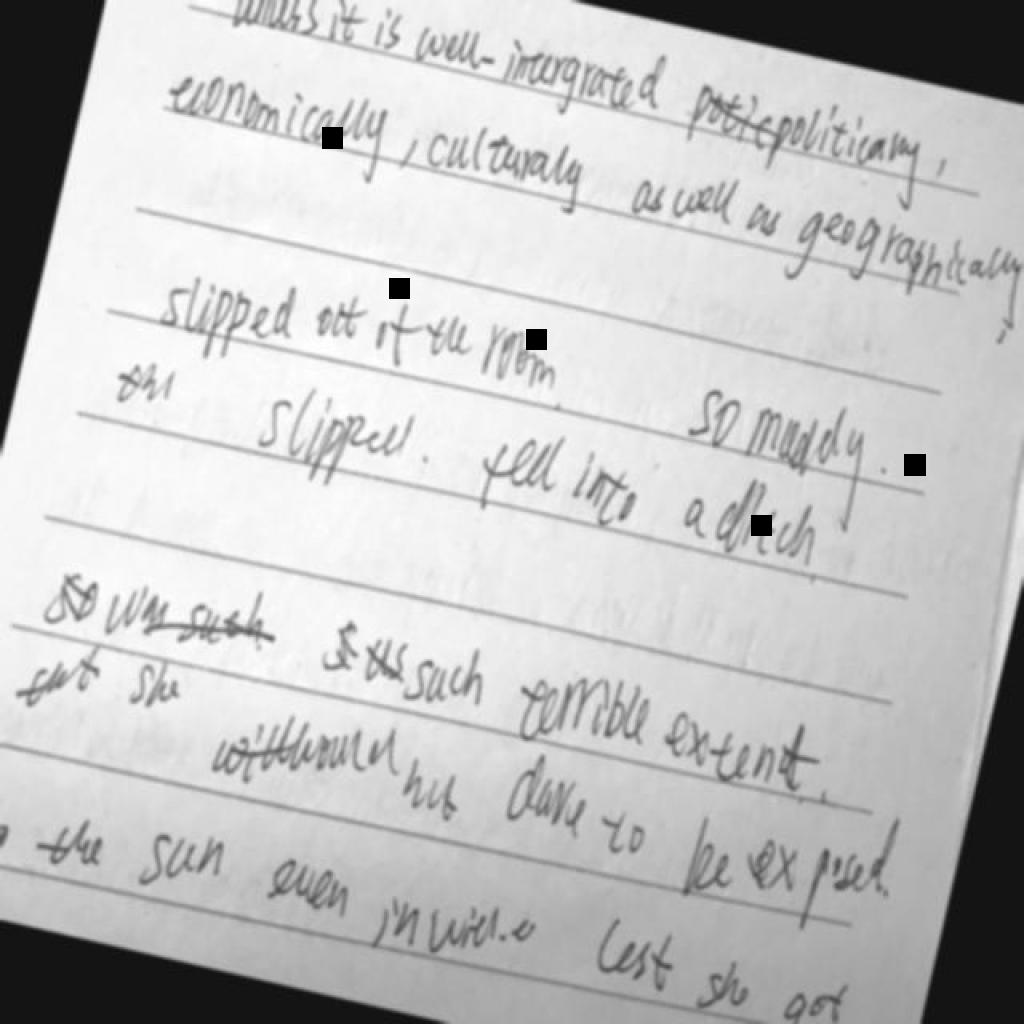 it is well-intergrated politically,
economically, culturaly as well as geographically
slipped out of the room.
so muddy.
slipped. fell into a ditch
such terrible extent.
she
not dare to be exposed.
the sun even in lest she got